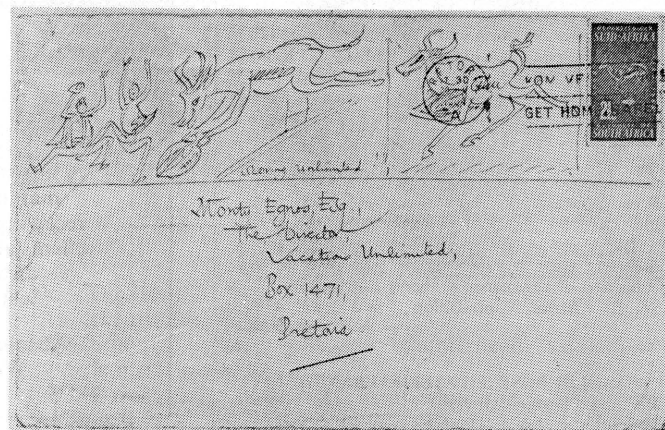 SUID-AFRIKA
2½
SOUTH AFRICA
GET HOM
Moving Unlimited
Monty Egnos, Esq.,
The Director,
Vacation Unlimited,
Box 1471,
Pretoria